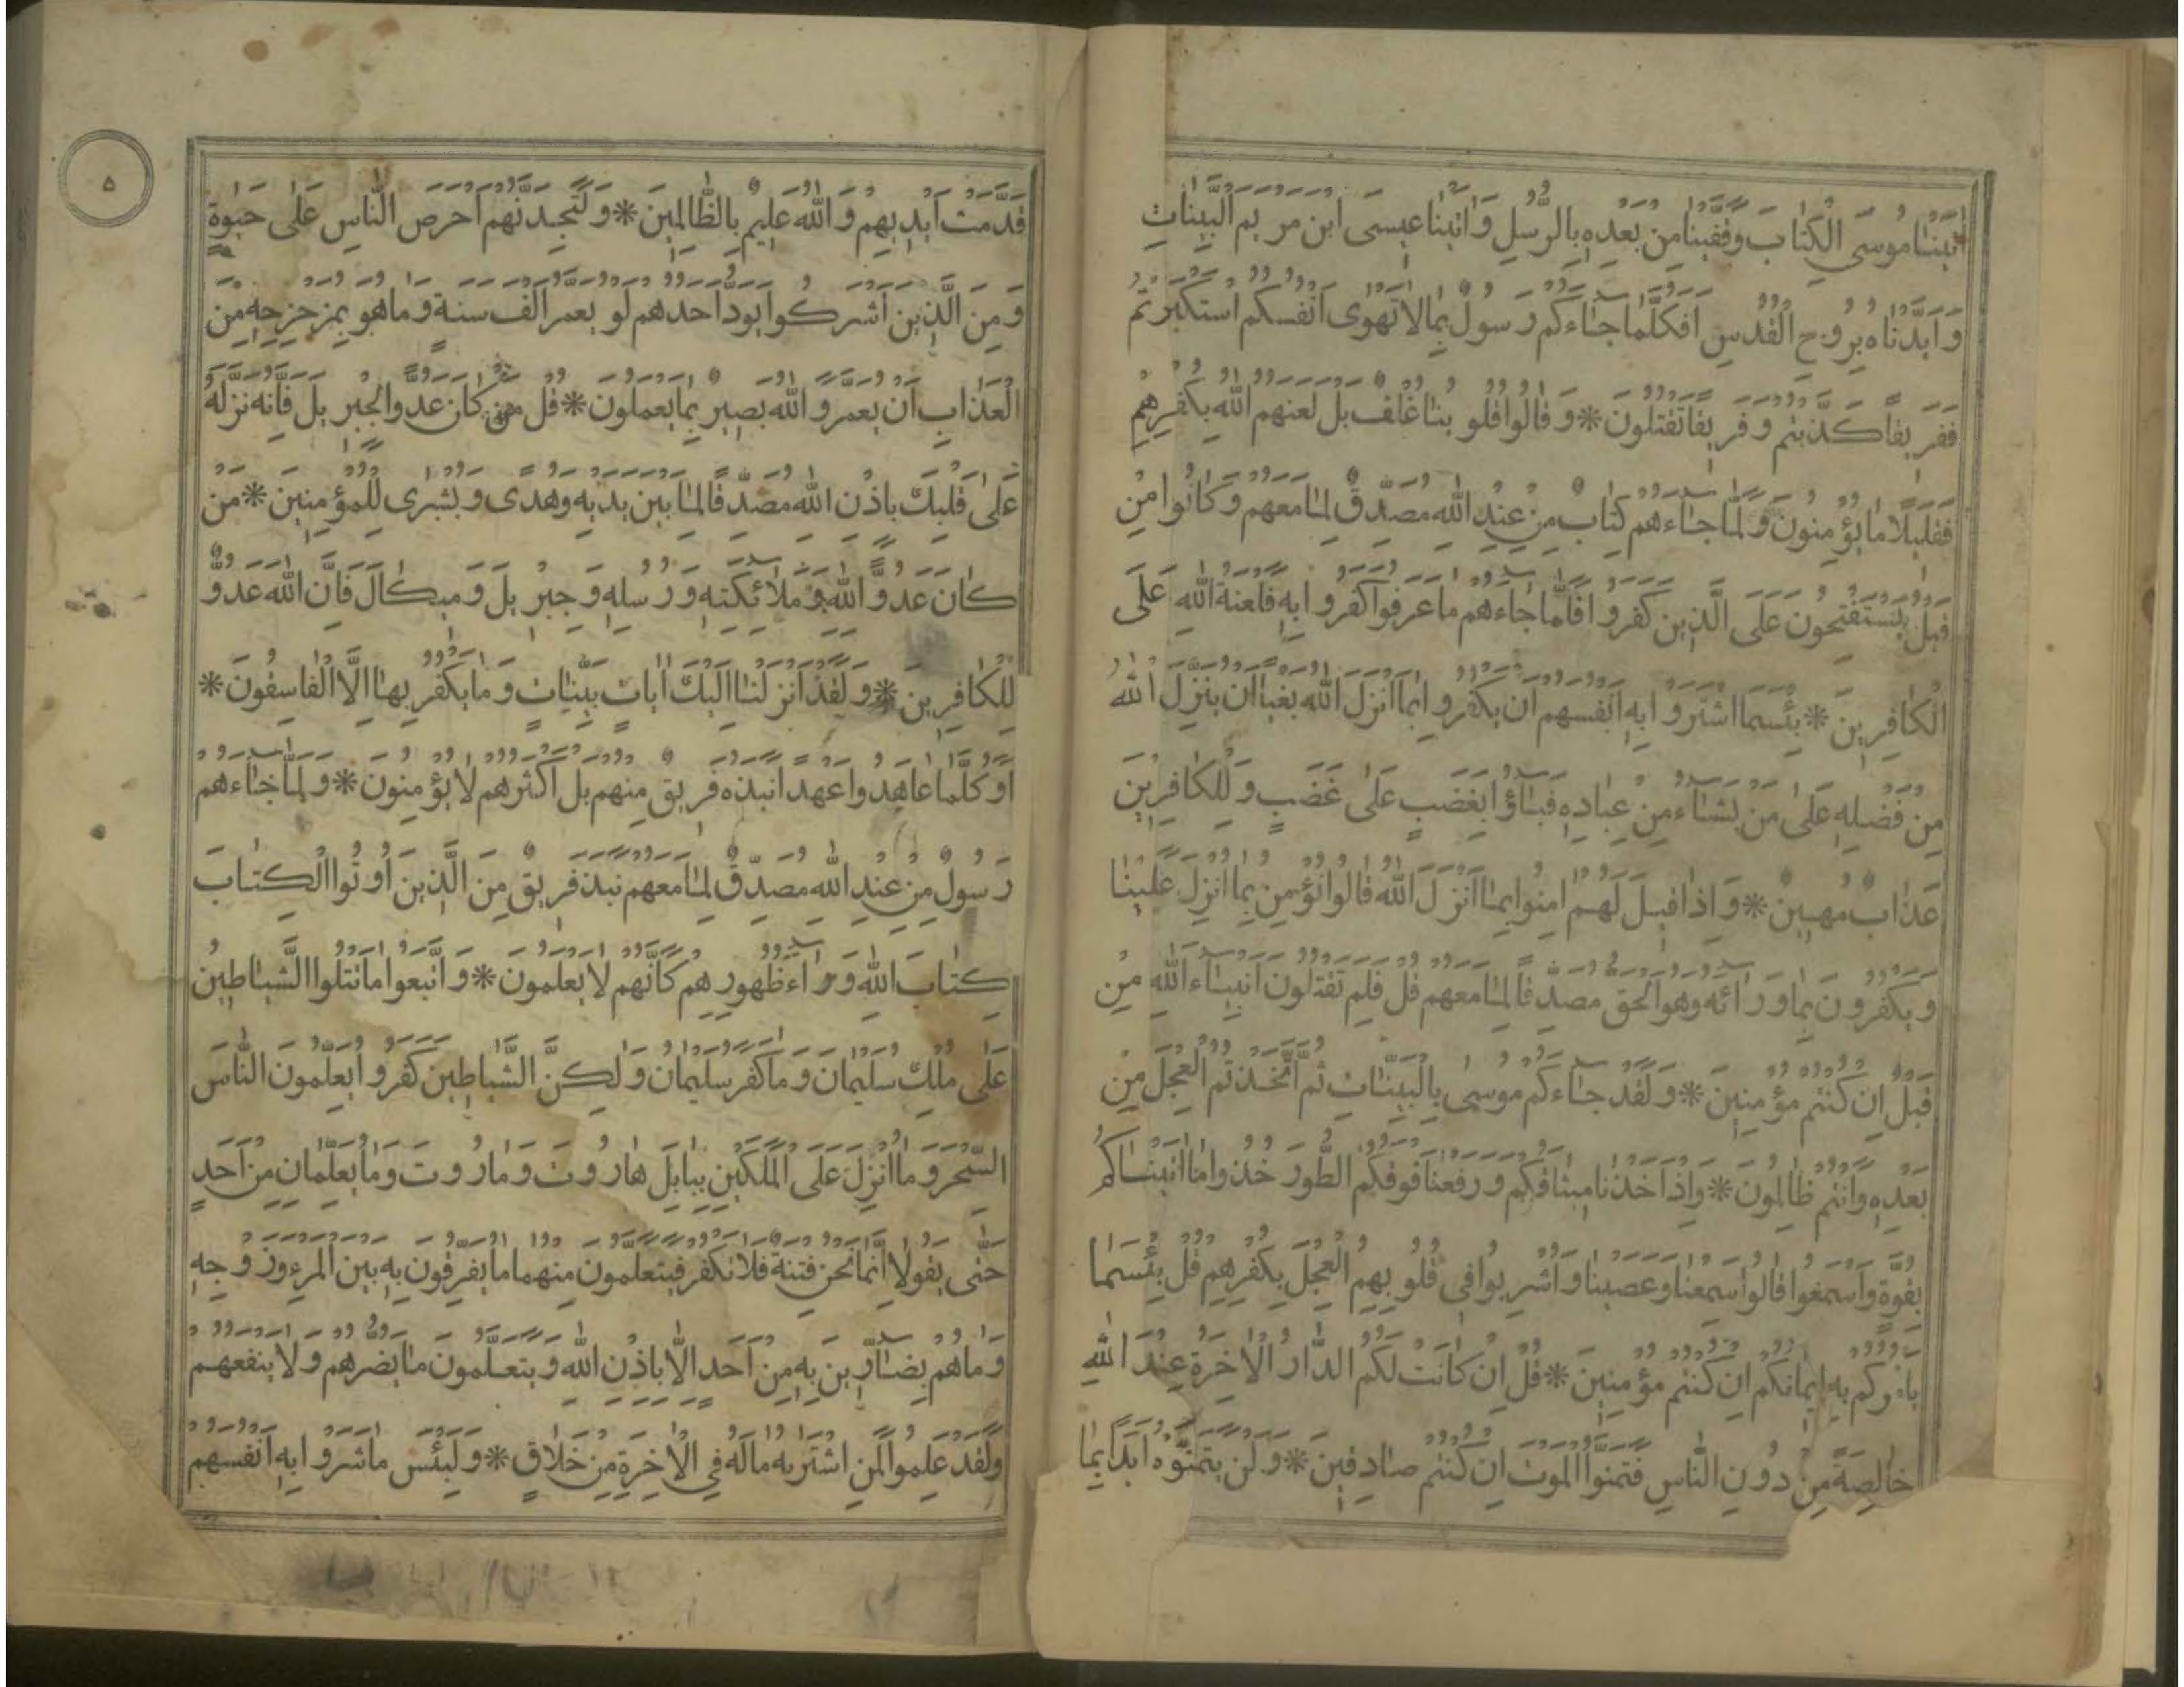 اٰتَيْنٰا مُوسَى الْكِتٰابَ وَقَفَّيْنٰا مِنْ بَعْدِهِ بِالرُّسُلِ وَاٰتَيْنٰا عِيسَى ابْنَ مَرْيَمَ الْبَيِّنٰاتِ
وَاَيَّدْنٰاهُ بِرُوحِ الْقُدُسِ اَفَكُلَّمٰا جٰاءَكُمْ رَسُولٌ بِمٰا لاٰ تَهْوٰى اَنْفُسُكُمُ اسْتَكْبَرْتُمْ
فَفَرِيقًا كَذَّبْتُمْ وَفَرِيقًا تَقْتُلُونَ * وَقٰالُوا قُلُوبُنٰا غُلْفٌ بَلْ لَعَنَهُمُ اللّٰهُ بِكُفْرِهِمْ
فَقَلِيلًا مٰا يُؤْمِنُونَ وَلَمّٰا جٰاءَهُمْ كِتٰابٌ مِنْ عِنْدِ اللّٰهِ مُصَدِّقٌ لِمٰا مَعَهُمْ وَكٰانُوا مِنْ
قَبْلُ يَسْتَفْتِحُونَ عَلَى الَّذِينَ كَفَرُوا فَلَمّٰا جٰاءَهُمْ مٰا عَرَفُوا كَفَرُوا بِهِ فَلَعْنَةُ اللّٰهِ عَلَى
الْكٰافِرِينَ * بِئْسَمَا اشْتَرَوْا بِهِ اَنْفُسَهُمْ اَنْ يَكْفُرُوا بِمٰا اَنْزَلَ اللّٰهُ بَغْيًا اَنْ يُنَزِّلَ اللّٰهُ
مِنْ فَضْلِهِ عَلٰى مَنْ يَشٰاءُ مِنْ عِبٰادِهِ فَبٰاؤُا بِغَضَبٍ عَلٰى غَضَبٍ وَلِلْكٰافِرِينَ
عَذٰابٌ مُهِينٌ * وَاِذٰا قِيلَ لَهُمْ اٰمِنُوا بِمٰا اَنْزَلَ اللّٰهُ قٰالُوا نُؤْمِنُ بِمٰا اُنْزِلَ عَلَيْنٰا
وَيَكْفُرُونَ بِمٰا وَرٰائَهُ وَهُوَ الْحَقُّ مُصَدِّقًا لِمٰا مَعَهُمْ قُلْ فَلِمَ تَقْتُلُونَ اَنْبِيٰاءَ اللّٰهِ مِنْ
قَبْلُ اِنْ كُنْتُمْ مُؤْمِنِينَ * وَلَقَدْ جٰاءَكُمْ مُوسٰى بِالْبَيِّنٰاتِ ثُمَّ اتَّخَذْتُمُ الْعِجْلَ مِنْ
بَعْدِهِ وَاَنْتُمْ ظٰالِمُونَ * وَاِذْ اَخَذْنٰا مِيثٰاقَكُمْ وَرَفَعْنٰا فَوْقَكُمُ الطُّورَ خُذُوا مٰا اٰتَيْنٰاكُمْ
بِقُوَّةٍ وَاسْمَعُوا قٰالُوا سَمِعْنٰا وَعَصَيْنٰا وَاُشْرِبُوا فِي قُلُوبِهِمُ الْعِجْلَ بِكُفْرِهِمْ قُلْ بِئْسَمٰا
يَاْمُرُكُمْ بِهِ اِيمٰانُكُمْ اِنْ كُنْتُمْ مُؤْمِنِينَ * قُلْ اِنْ كٰانَتْ لَكُمُ الدّٰارُ الْاٰخِرَةُ عِنْدَ اللّٰهِ
خٰالِصَةً مِنْ دُونِ النّٰاسِ فَتَمَنَّوُا الْمَوْتَ اِنْ كُنْتُمْ صٰادِقِينَ * وَلَنْ يَتَمَنَّوْهُ اَبَدًا بِمٰا
۵
قَدَّمَتْ اَيْدِيهِمْ وَاللّٰهُ عَلِيمٌ بِالظّٰالِمِينَ * وَلَتَجِدَنَّهُمْ اَحْرَصَ النّٰاسِ عَلٰى حَيٰوةٍ
وَمِنَ الَّذِينَ اَشْرَكُوا يَوَدُّ اَحَدُهُمْ لَوْ يُعَمَّرُ اَلْفَ سَنَةٍ وَمٰا هُوَ بِمُزَحْزِحِهِ مِنَ
الْعَذٰابِ اَنْ يُعَمَّرَ وَاللّٰهُ بَصِيرٌ بِمٰا يَعْمَلُونَ * قُلْ مَنْ كٰانَ عَدُوًّا لِجِبْرِيلَ فَاِنَّهُ نَزَّلَهُ
عَلٰى قَلْبِكَ بِاِذْنِ اللّٰهِ مُصَدِّقًا لِمٰا بَيْنَ يَدَيْهِ وَهُدًى وَبُشْرٰى لِلْمُؤْمِنِينَ * مَنْ
كٰانَ عَدُوًّا لِلّٰهِ وَمَلاٰئِكَتِهِ وَرُسُلِهِ وَجِبْرِيلَ وَمِيكٰالَ فَاِنَّ اللّٰهَ عَدُوٌّ
لِلْكٰافِرِينَ * وَلَقَدْ اَنْزَلْنٰا اِلَيْكَ اٰيٰاتٍ بَيِّنٰاتٍ وَمٰا يَكْفُرُ بِهٰا اِلَّا الْفٰاسِقُونَ *
اَوَكُلَّمٰا عٰاهَدُوا عَهْدًا نَبَذَهُ فَرِيقٌ مِنْهُمْ بَلْ اَكْثَرُهُمْ لاٰ يُؤْمِنُونَ * وَلَمّٰا جٰاءَهُمْ
رَسُولٌ مِنْ عِنْدِ اللّٰهِ مُصَدِّقٌ لِمٰا مَعَهُمْ نَبَذَ فَرِيقٌ مِنَ الَّذِينَ اُوتُوا الْكِتٰابَ
كِتٰابَ اللّٰهِ وَرٰاءَ ظُهُورِهِمْ كَاَنَّهُمْ لاٰ يَعْلَمُونَ * وَاتَّبَعُوا مٰا تَتْلُوا الشَّيٰاطِينُ
عَلٰى مُلْكِ سُلَيْمٰانَ وَمٰا كَفَرَ سُلَيْمٰانُ وَلٰكِنَّ الشَّيٰاطِينَ كَفَرُوا يُعَلِّمُونَ النّٰاسَ
السِّحْرَ وَمٰا اُنْزِلَ عَلَى الْمَلَكَيْنِ بِبٰابِلَ هٰارُوتَ وَمٰارُوتَ وَمٰا يُعَلِّمٰانِ مِنْ اَحَدٍ
حَتّٰى يَقُولاٰ اِنَّمٰا نَحْنُ فِتْنَةٌ فَلاٰ تَكْفُرْ فَيَتَعَلَّمُونَ مِنْهُمٰا مٰا يُفَرِّقُونَ بِهِ بَيْنَ الْمَرْءِ وَزَوْجِهِ
وَمٰا هُمْ بِضٰارِّينَ بِهِ مِنْ اَحَدٍ اِلَّا بِاِذْنِ اللّٰهِ وَيَتَعَلَّمُونَ مٰا يَضُرُّهُمْ وَلاٰ يَنْفَعُهُمْ
وَلَقَدْ عَلِمُوا لَمَنِ اشْتَرٰيهُ مٰا لَهُ فِي الْاٰخِرَةِ مِنْ خَلاٰقٍ * وَلَبِئْسَ مٰا شَرَوْا بِهِ اَنْفُسَهُمْ